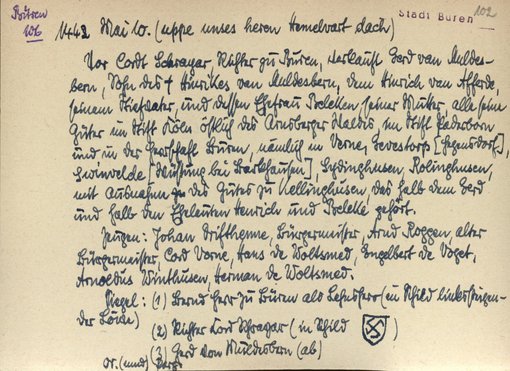 Büren
106
Stadt Büren 102
1442 Mai 10. (uppe unses heren Hemelvart dach)
Vor Cordt Schragar Richter zu Büren, verkauft Gerd van Muldes-
bern, Sohn des † Hinrikes van Muldesbern, dem Hinrich van Afferde,
seinem Stiefvater, und dessen Ehefrau Beleken seiner Mutter alle seine
Güter im Stift Köln östlich des Arnsberger Waldes, im Stift Paderborn
und in der Herrschaft Büren, nämlich in Verne, Gevestorp [Heges
dorf],
Swinvelde [Wüstung bei Barkhausen], Sydinghusen, Rolinghusen,
mit Ausnahme des Gutes zu Kellinghusen, das halb dem Gerd
und halb den Eheleuten Henrich und Beleke gehört.
Zeugen: Johan Drifthenne, Bürgermeister, Arnd Roggen, alter
Bürgermeister, Cord Vorne, Hans de Woltsmed, Engelbert de Voget,
Arnoldus Winthusen, Herman de Woltsmed.
Siegel: (1) Bernd Herr zu Büren als Lehnsherr (im Schild linksteigen-
der Löwe)
(2) Richter Cord Schragar (im Schild )
(3) Gerd von Muldesbern (ab)
Or. (mnd) Perg.